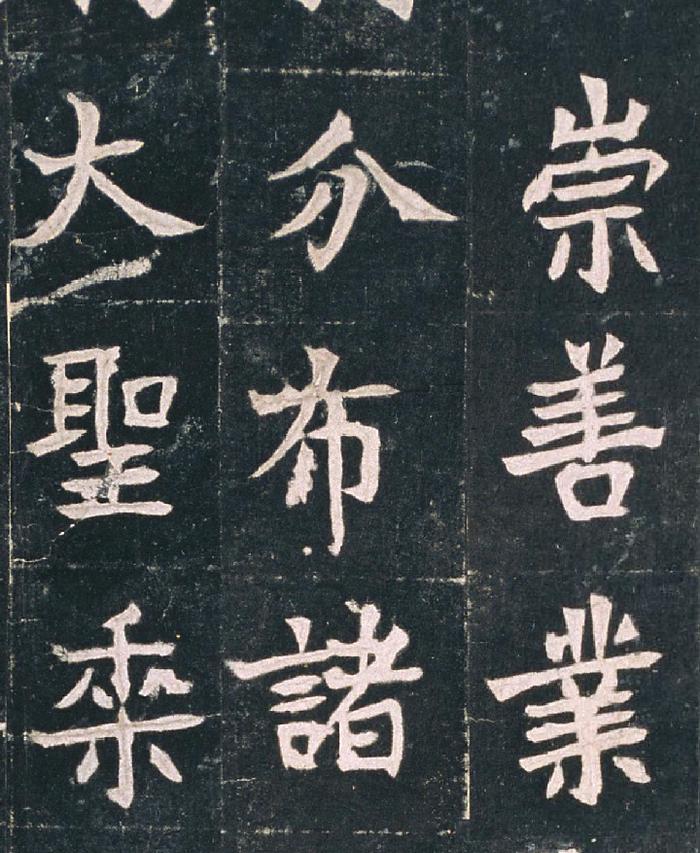 崇善業
分布諸
大聖乘